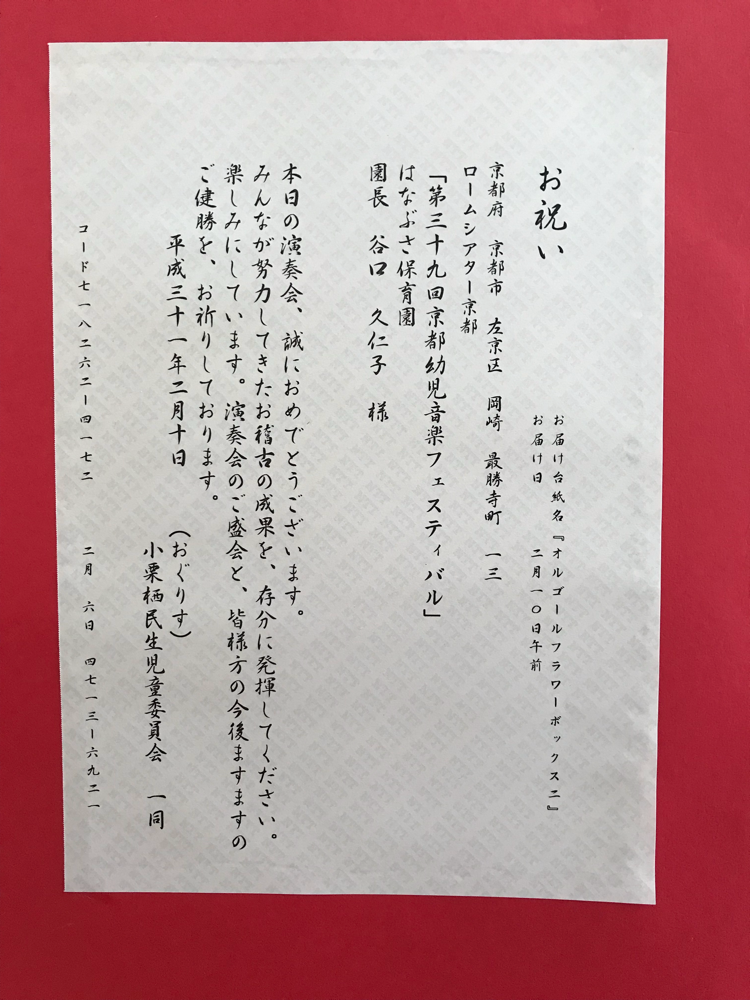 お届け台紙名『オルゴールフラワーボックス二』
お届け日　二月一〇日午前
お祝い
京都府　京都市　左京区　岡崎　最勝寺町　一三
ロームシアター京都
「第三十九回京都幼児音楽フェスティバル」
はなぶさ保育園
園長　谷口　久仁子　様
本日の演奏会、誠におめでとうございます。
みんなが努力してきたお稽古の成果を、存分に発揮してください。
楽しみにしています。演奏会のご盛会と、皆様方の今後ますますの
ご健勝を、お祈りしております。
平成三十一年二月十日
（おぐりす）
小栗栖民生児童委員会　一同
コード七一八二六二ー四一七二　二月　六日　四七一三ー六九二一